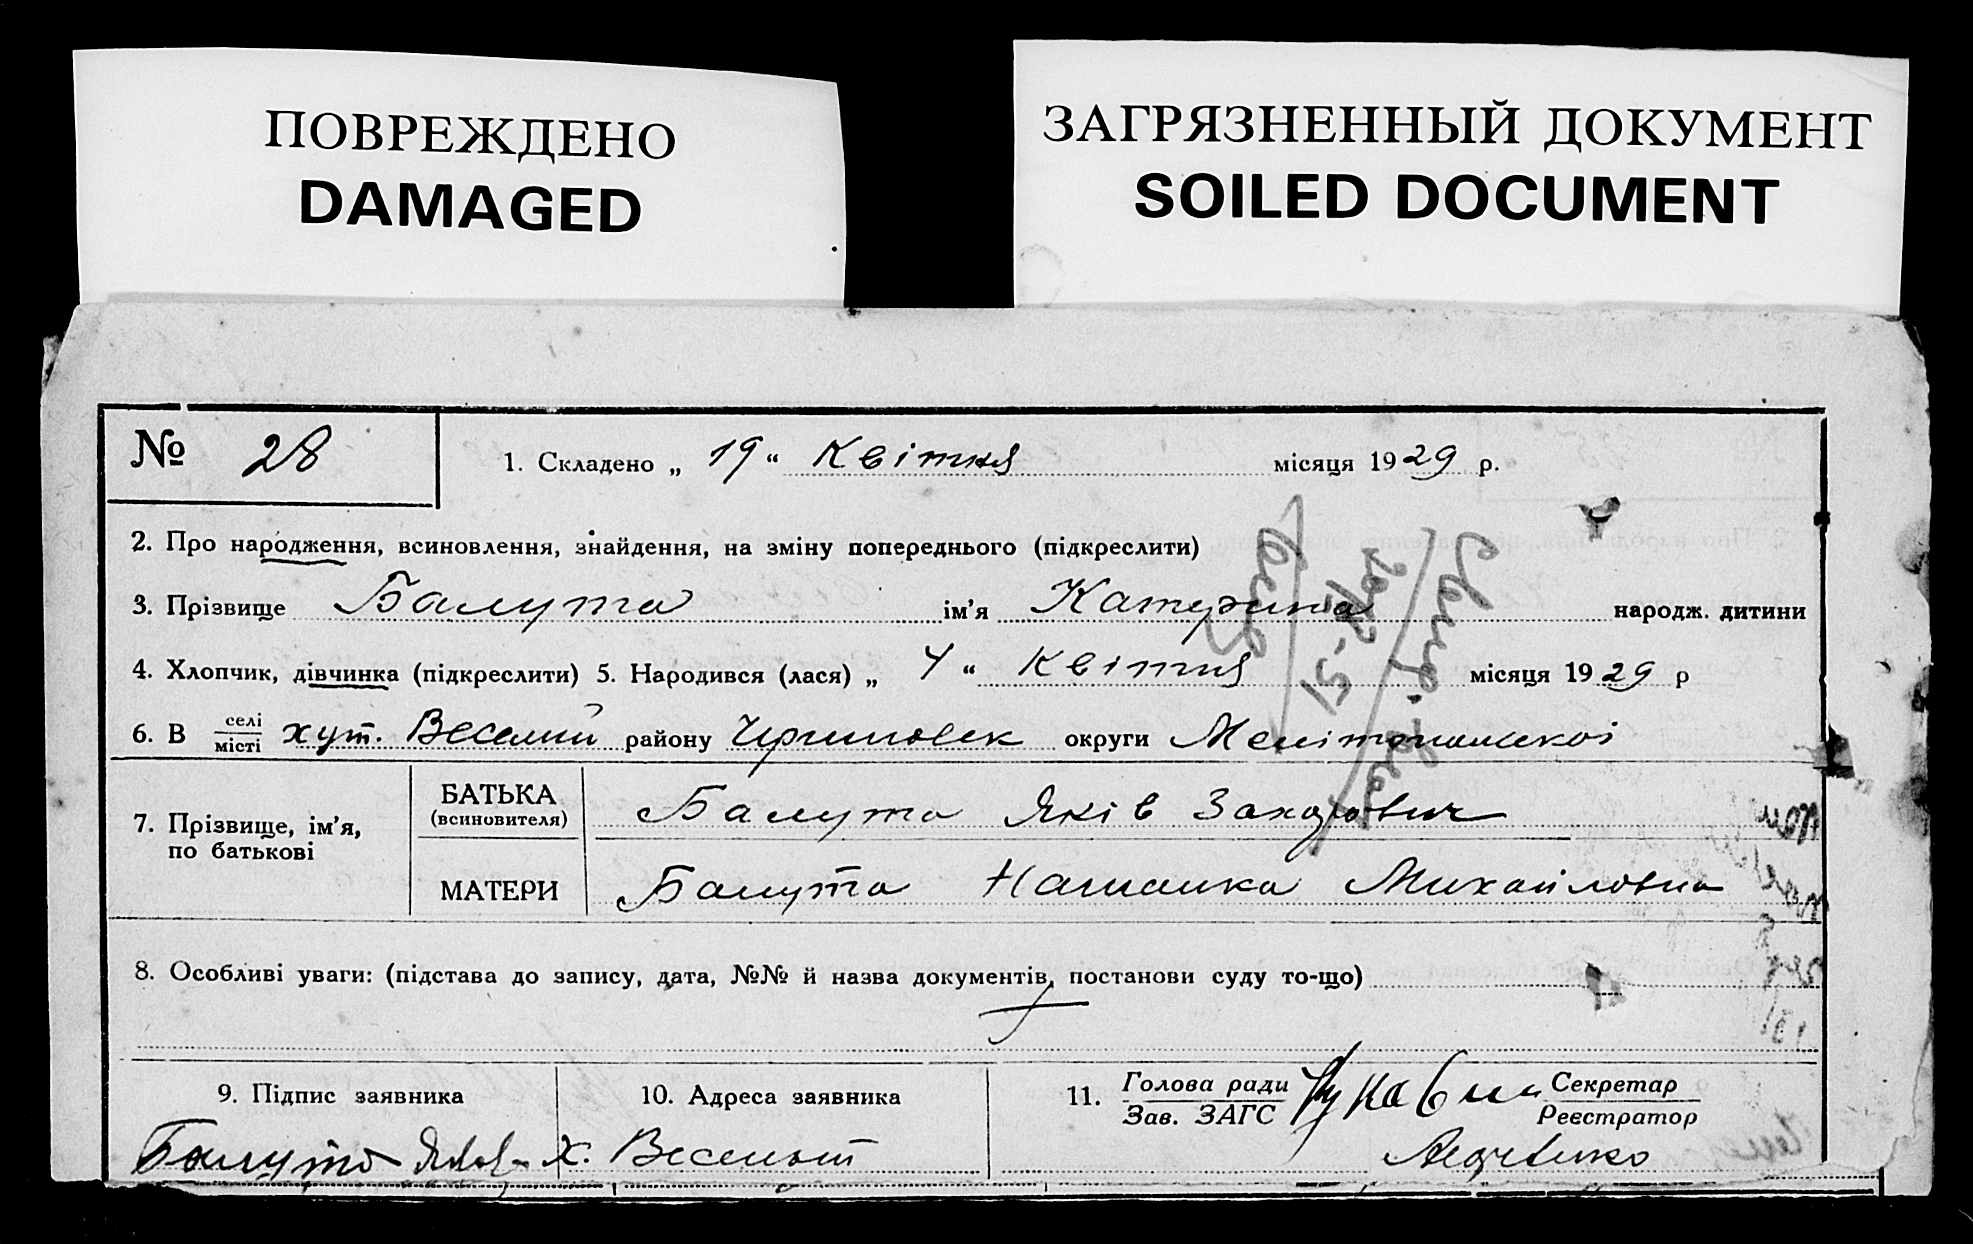 ПОВРЕЖДЕНО
DAMAGED
ЗАГРЯЗНЕННЫЙ ДОКУМЕНТ
SOILED DOCUMENT
№ 28
1. Складено „ 19 “ Квітня місяця 1929 р.
2. Про народження, всиновлення, знайдення, на зміну попереднього (підкреслити)
3. Прізвище Балута ім’я Катерина народж. дитини
4. Хлопчик, дівчинка (підкреслити) 5. Народився (лася) „ 4 “ Квітня місяця 1929 р
6. В селі місті хут. Веселий району округи Мелітопольскоі
7. Прізвище, ім’я, по батькові
БАТЬКА (всиновителя) Балута Яків Захарович
МАТЕРИ Балута Наталка Михайловна
8. Особливі уваги: (підстава до запису, дата, №№ й назва документів, постанови суду то-що)
9. Підпис заявника
10. Адреса заявника
11. Голова ради Зав. ЗАГС
Секретар Реєстратор
Балута
х.